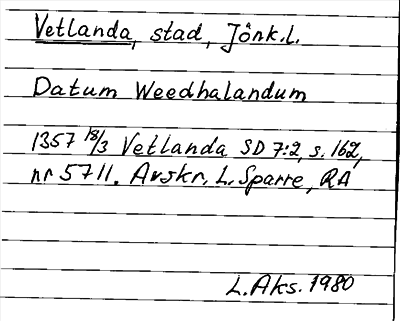 Vetlanda, stad, Jönk.l.
Datum Weedhalandum
1357 18/3 Vetlanda SD 7:2, s. 162,
nr 5711. Avskr. L. Sparre, RA
L. Aks. 1980